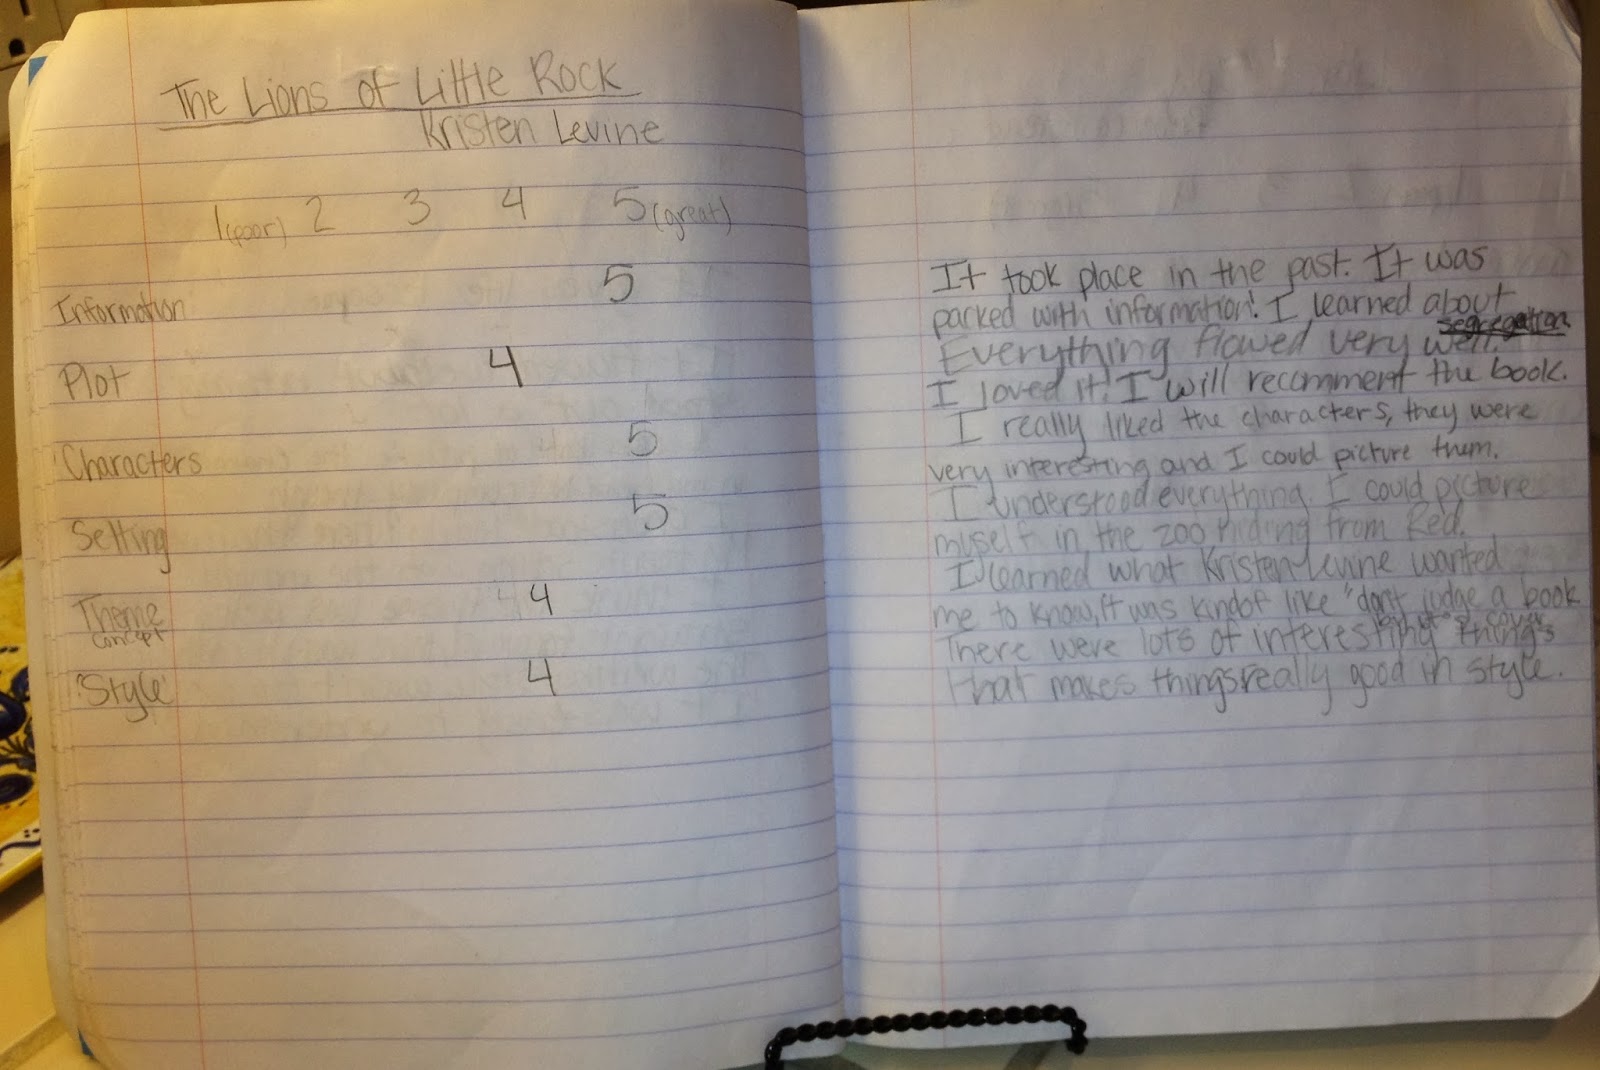 The Lions of Little Rock
Kristen Levine
1(poor) 2 3 4 5(great)
Information 5
Plot 4
Characters 5
Setting 5
Theme 4
concept
Style 4
It took place in the past. It was
packed with information! I learned about
segregation.
Everything flowed very well.
I loved it! I will recomment the book.
I really liked the characters, they were
very interesting and I could picture them.
I understood everything. I could picture
myself in the zoo hiding from Red.
I learned what Kristen Levine wanted
me to know, it was kindof like "dont judge a book
by it's cover"
There were lots of interesting things
that makes things really good in style.